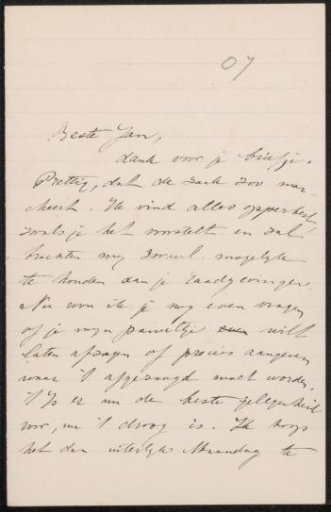 07
Beste Jan,
dank voor je briefje.
Prettig, dat de zaak zoo mar-
cheert. Ik vind alles opperbest
zoals je het voorstelt en zal
trachten my zooveel mogelyk
te houden aan je raadgevingen.
Nu wou ik je nog even vragen
of je myn paneeltje even wilt
laten afzagen of precies aangeven
waar 't afgezaagd moet worden.
't Is er nu de beste gelegenheid
voor, nu 't droog is. Ik hoop
het dan uiterlyk Maandag te